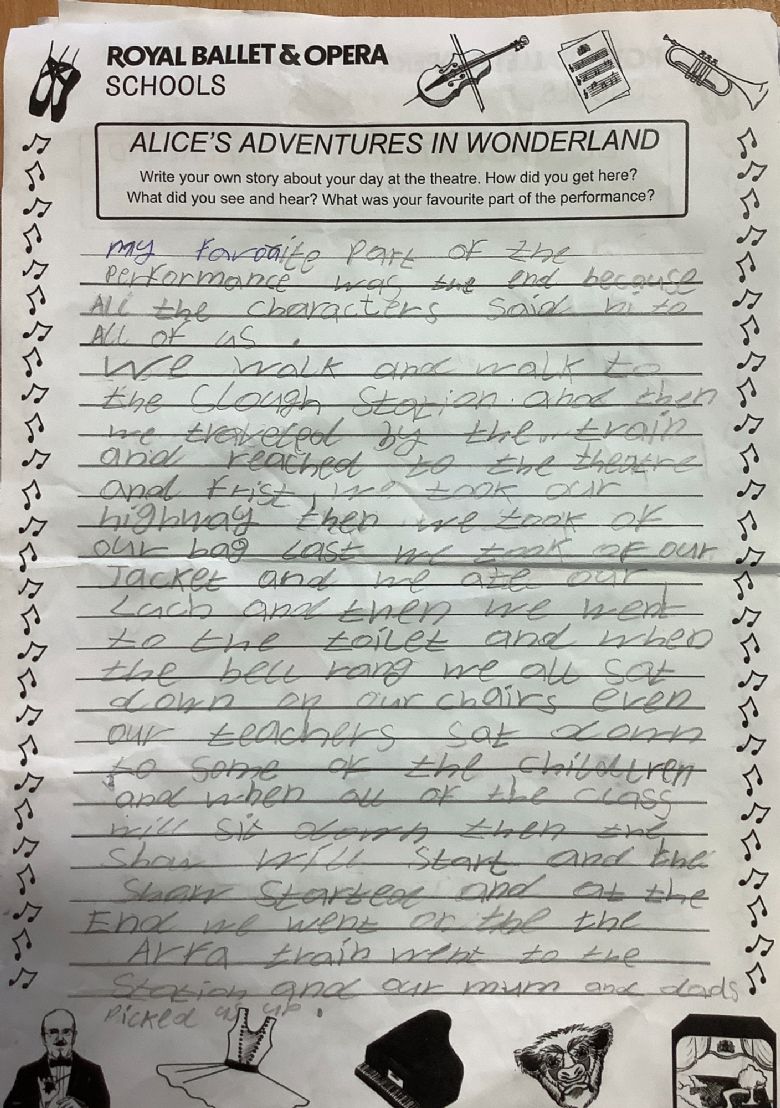 ROYAL BALLET & OPERA
SCHOOLS
ALICE'S ADVENTURES IN WONDERLAND
Write your own story about your day at the theatre. How did you get here?
What did you see and hear? What was your favourite part of the performance?
my favoraite Part of the
Performance was the end because
All the characters said hi to
All of us.
We walk and walk to
the Slough Station. and then
we traveled by the train
and reached to the theatre
and frist, we took our
highway then we took of
our bag last we took of our
Jacket and we ate our
Luch and then we went
to the toilet and when
the bell rang we all sat
down on our chairs even
our teachers sat down
to some of the children
and when all of the class
will sit down then the
Show will start and the
Show Started and at the
End we went or the the
train went to the
Station and our mum and dads
Picked us up.